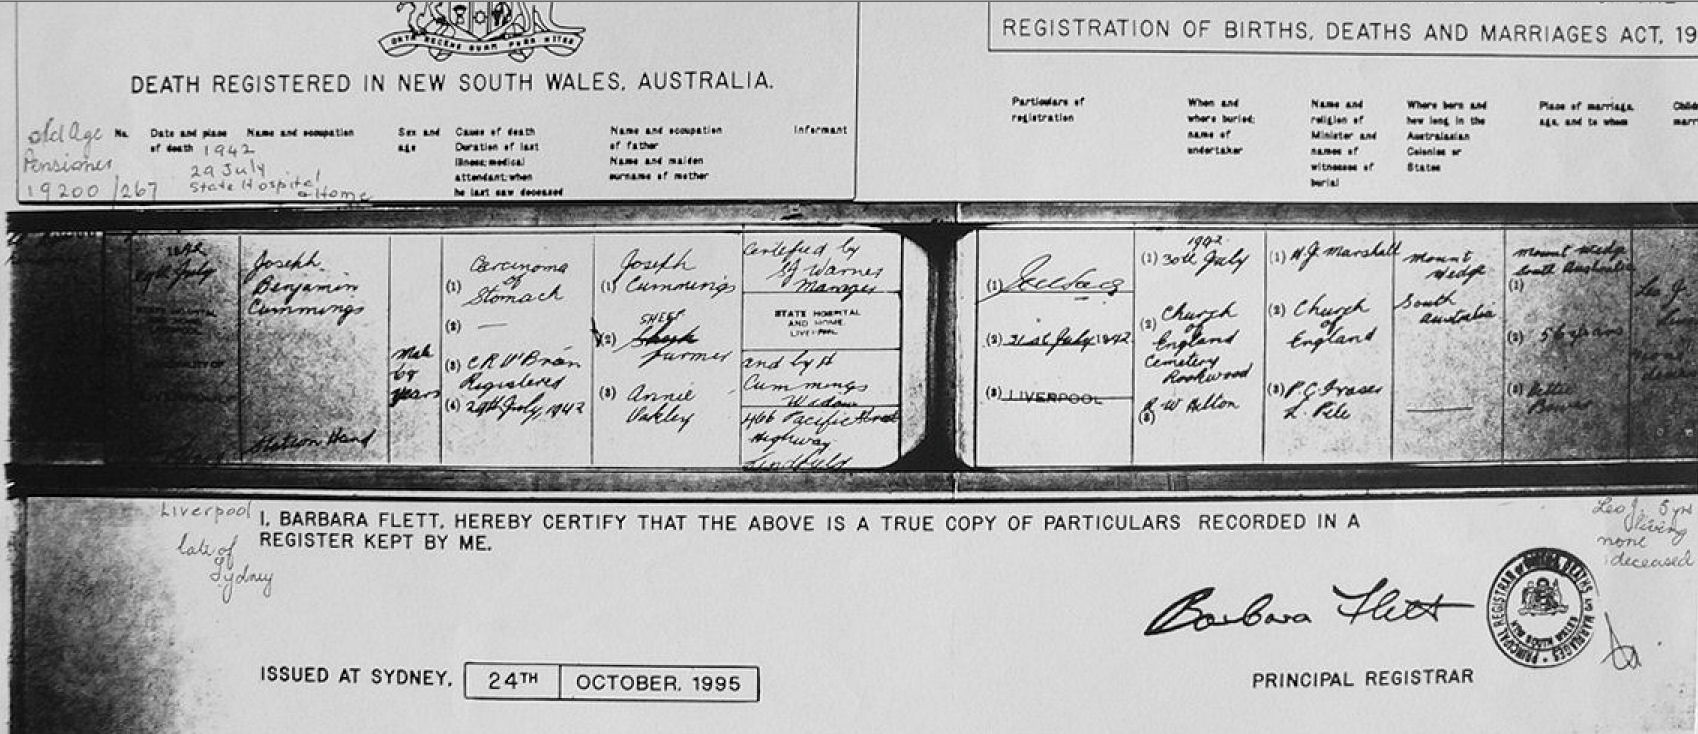 ORTA RECENS QUAM PURA NITES
DEATH REGISTERED IN NEW SOUTH WALES, AUSTRALIA.
REGISTRATION OF BIRTHS, DEATHS AND MARRIAGES ACT, 19
old Age
Pensioner
19200/267
No.
Date and place
of death 1942
29 July
State Hospital
& Home
Name and occupation
Sex and
age
Cause of death
Duration of last
illness; medical
attendant; when
he last saw deceased
Name and occupation
of father
Name and maiden
surname of mother
Informant
Particulars of
registration
When and
where buried;
name of
undertaker
Name and
religion of
Minister and
names of
witnesses of
burial
Where born and
how long in the
Australasian
Colonies or
States
Place of marriage,
age, and to whom
1942
29th July
STATE HOSPITAL
LIVERPOOL
Joseph
Benjamin
Cummings
Station Hand
Male
years
Carcinoma
of
(1) Stomach
(2) —
(3) C R O'Brien
Registered
(4) 29th July, 1942
Joseph
(1) Cummings
SHEEP
(2)
Farmer
(3) Annie
Oakley
Certified by
Warner
Manager
STATE HOSPITAL
AND HOME
LIVERPOOL
and by H
Cummings
Widow
466 Pacific Street
Highway
Lindfield
(1)
(2) 31st July, 1942
(3) LIVERPOOL
1942
(1) 30th July
(2) Church
of
England
Cemetery
Rookwood
R W Hilton
(3)
(1) H.J. Marshall
(2) Church
of
England
(3) P.C. Fraser
L. Pile
Mount
Wedge
South
Australia
Mount Wedge
South Australia
(1)
(2) 56 years
(3)
Leo J.
Liverpool
late of
Sydney
I, BARBARA FLETT, HEREBY CERTIFY THAT THE ABOVE IS A TRUE COPY OF PARTICULARS RECORDED IN A
REGISTER KEPT BY ME.
Leo J. 5 yr
living
none
deceased
Barbara Flett
PRINCIPAL REGISTRAR
ISSUED AT SYDNEY, 24TH OCTOBER, 1995